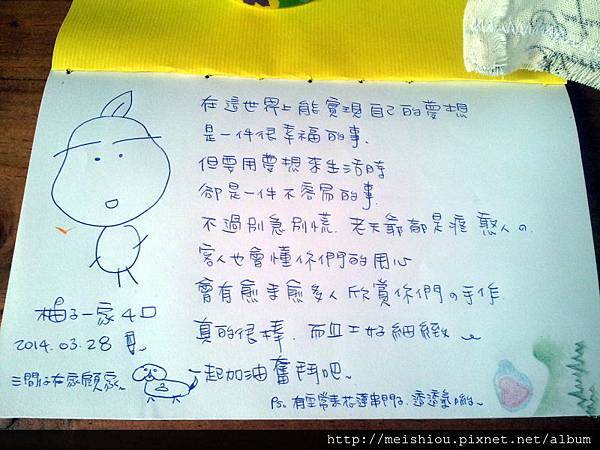 在這世界上能實現自己的夢想
是一件很幸福的事.
但要用夢想來生活時
卻是一件不容易的事.
不過別急別慌. 老天爺都是疼憨人の.
客人也會懂你們的用心
會有愈來愈多人欣賞你們の手作.
真的很棒. 而且工好細緻
一起加油奮鬥吧~
Ps. 有空常來花蓮串門子. 透透氣喲~
柚子一家4口
2014.03.28
三間仔在家顧家~
http://meishiou.pixnet.net/album